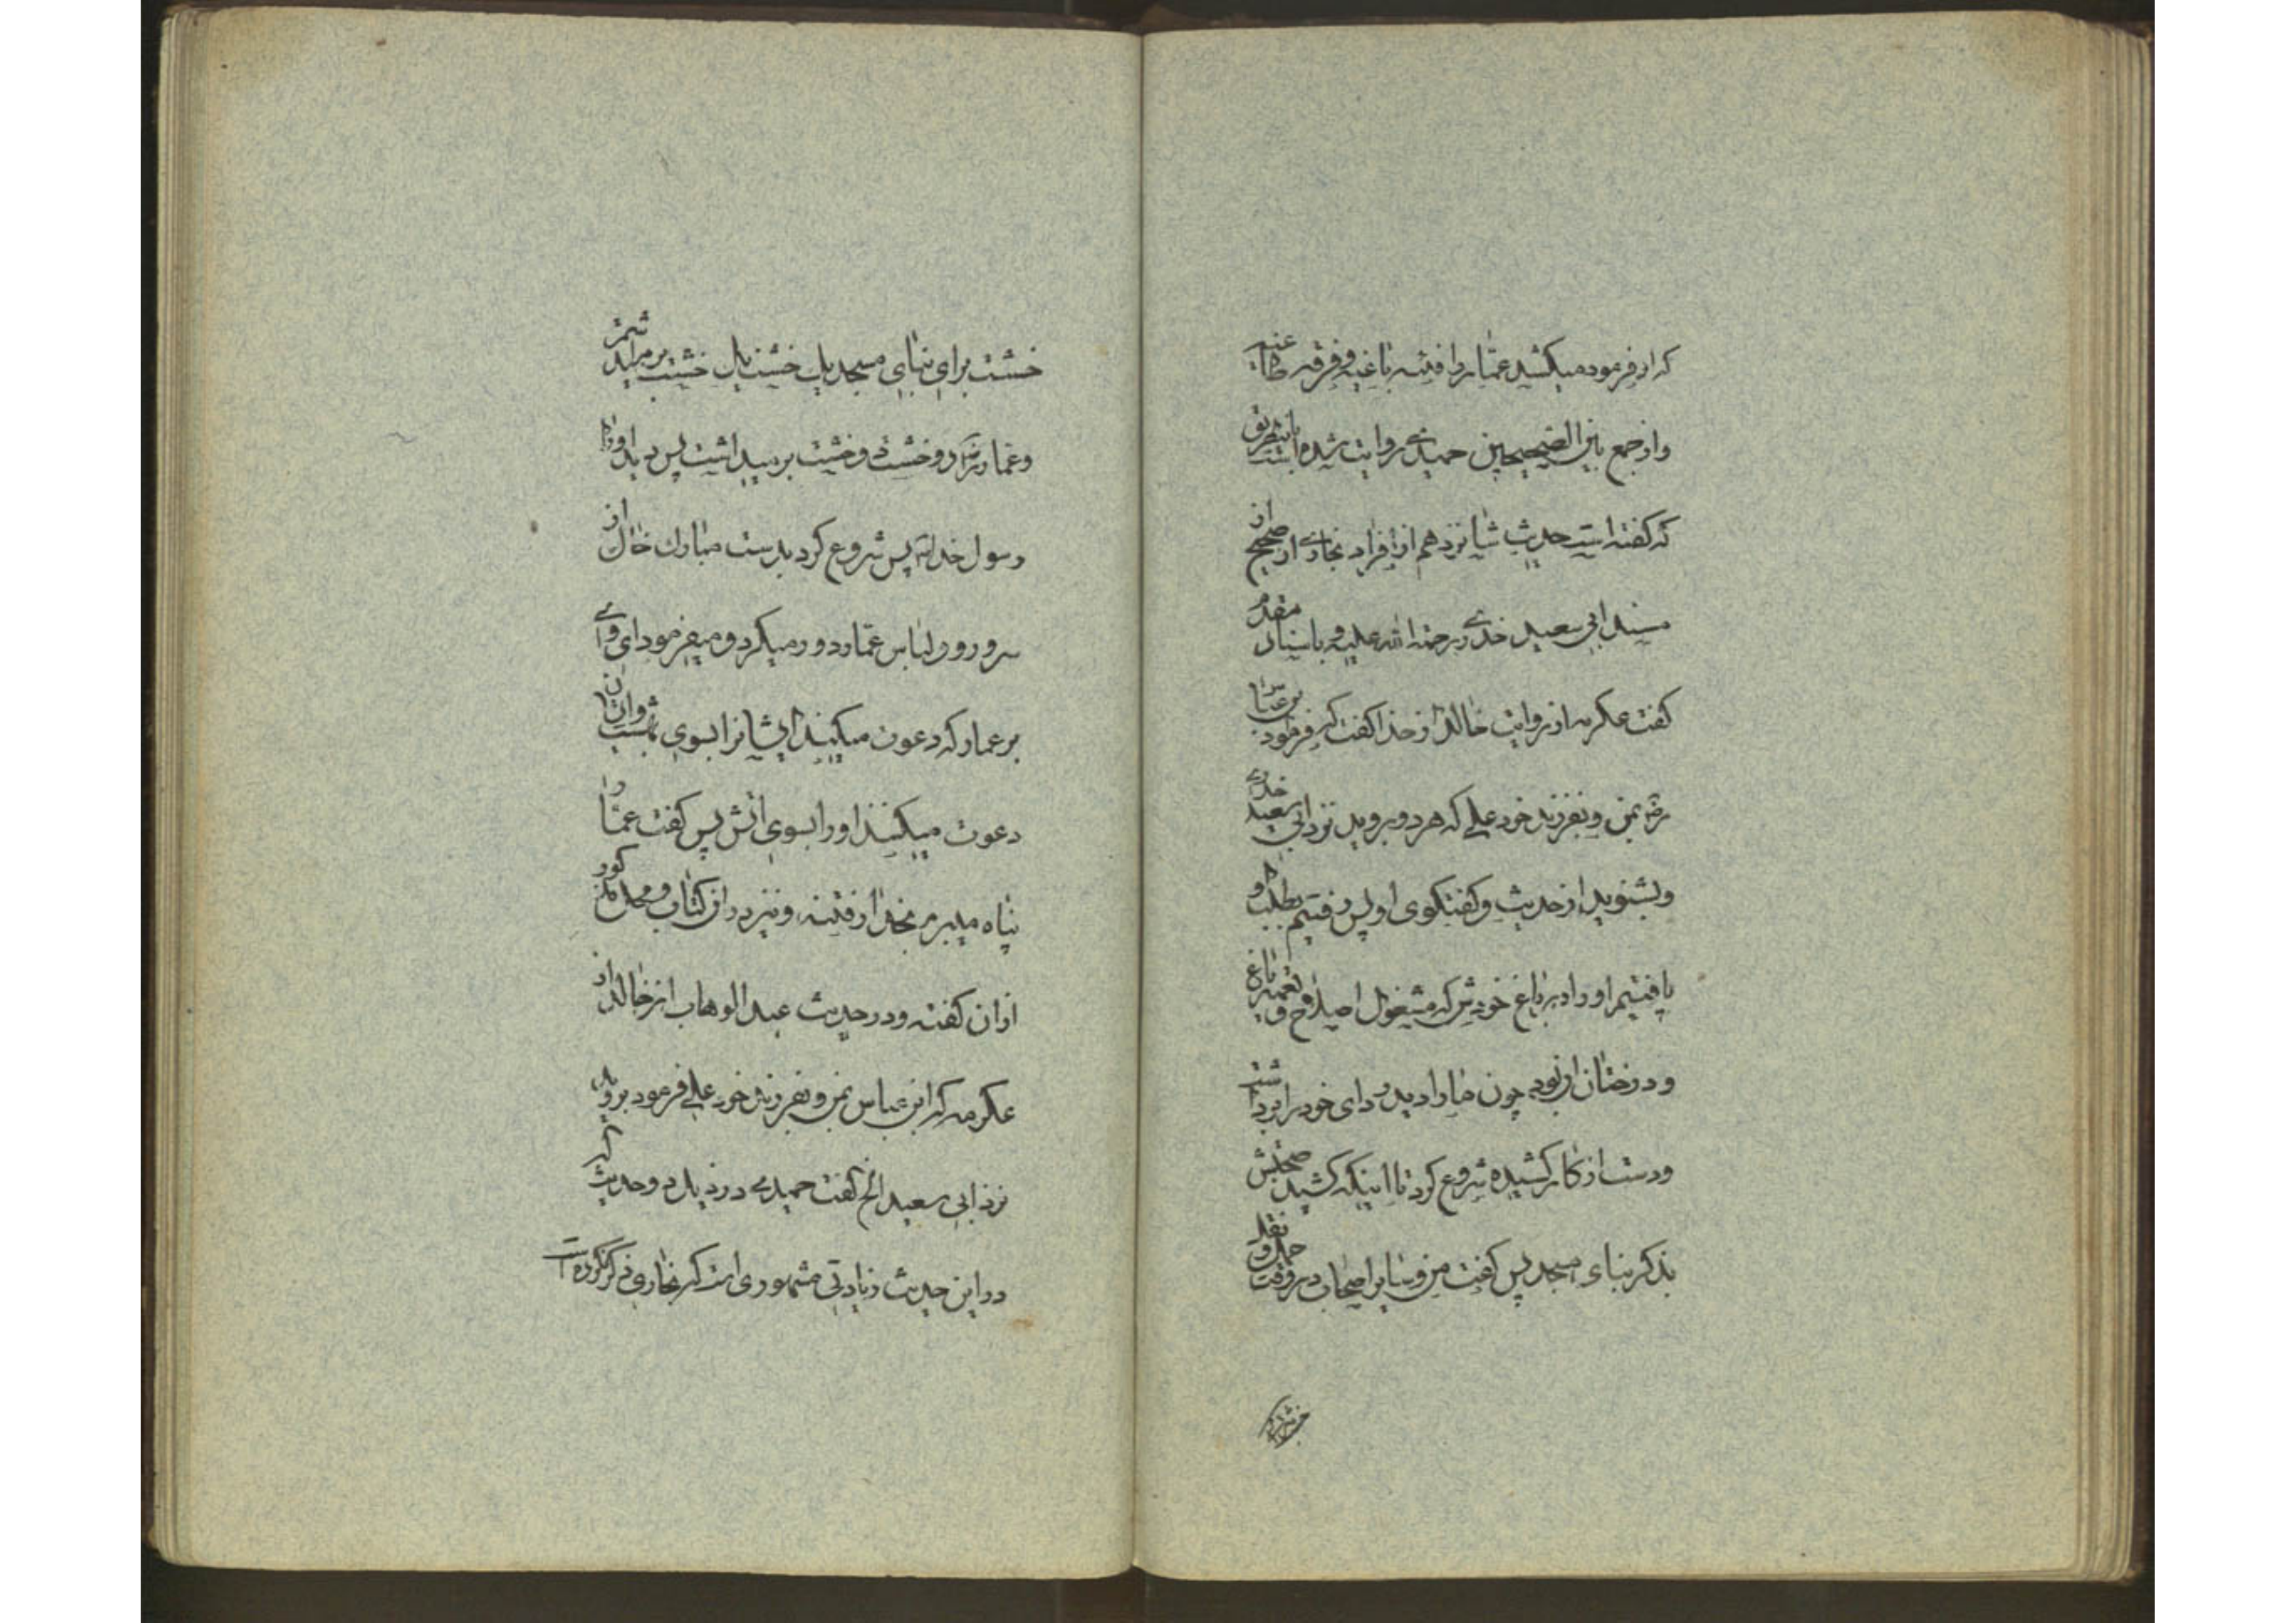 که او فرموده میکشد عمار را فئه باغیه و فرقه طاغیه
و از جمع بین الصحیحین حمیدی روایت شده باینطریق است
که گفته است حدیث شانزدهم از افراد بخاری از صحیح از
مسند ابی سعید خدری رحمة الله علیه و باسناد مقدم
گفت عکرمه از روایت خالد از حذا گفت که فرمود ابن عباس
رض بمن و بفرزند خود علی که هر دو بروید نزد ابی سعید خدری
و بشنوید از حدیث و گفتگوی او پس رفتیم بطلب او
یافتیم او را در باغ خودش که مشغول اصلاح و تعمیر باغ
و درختان او بود چون ما را دید ردای خود را برداشت
و دست از کار کشیده شروع کرد تا اینکه کشید صحبتش
بذکر بناء مسجد پس گفت من و سایر اصحاب در وقت حمل و نقل
خشت
خشت برای بنای مسجد یک خشت یک خشت بر میداشتیم
و عمار دو خشت دو خشت بر میداشت پس دید او را
رسول خدا پس شروع کرد بدست مبارک خاک از
سر و روی لباس عمار دور میکرد و میفرمود ای وای
بر عمار که دعوت میکند ایشانرا بسوی بهشت و آنان
دعوت میکنند او را بسوی آتش پس گفت عمار
پناه میبرم بخدا از فتنه و نیز در آن کتاب و محل مذکور
از آن گفته و در حدیث عبد الوهاب از خالد از
عکرمه که ابن عباس بمن و بفرزند خود علی فرمود بروید
نزد ابی سعید الخ گفت حمیدی در ذیل دو حدیث که
در این حدیث زیادتی مشهوری است که بخاری ذکر نکرده است